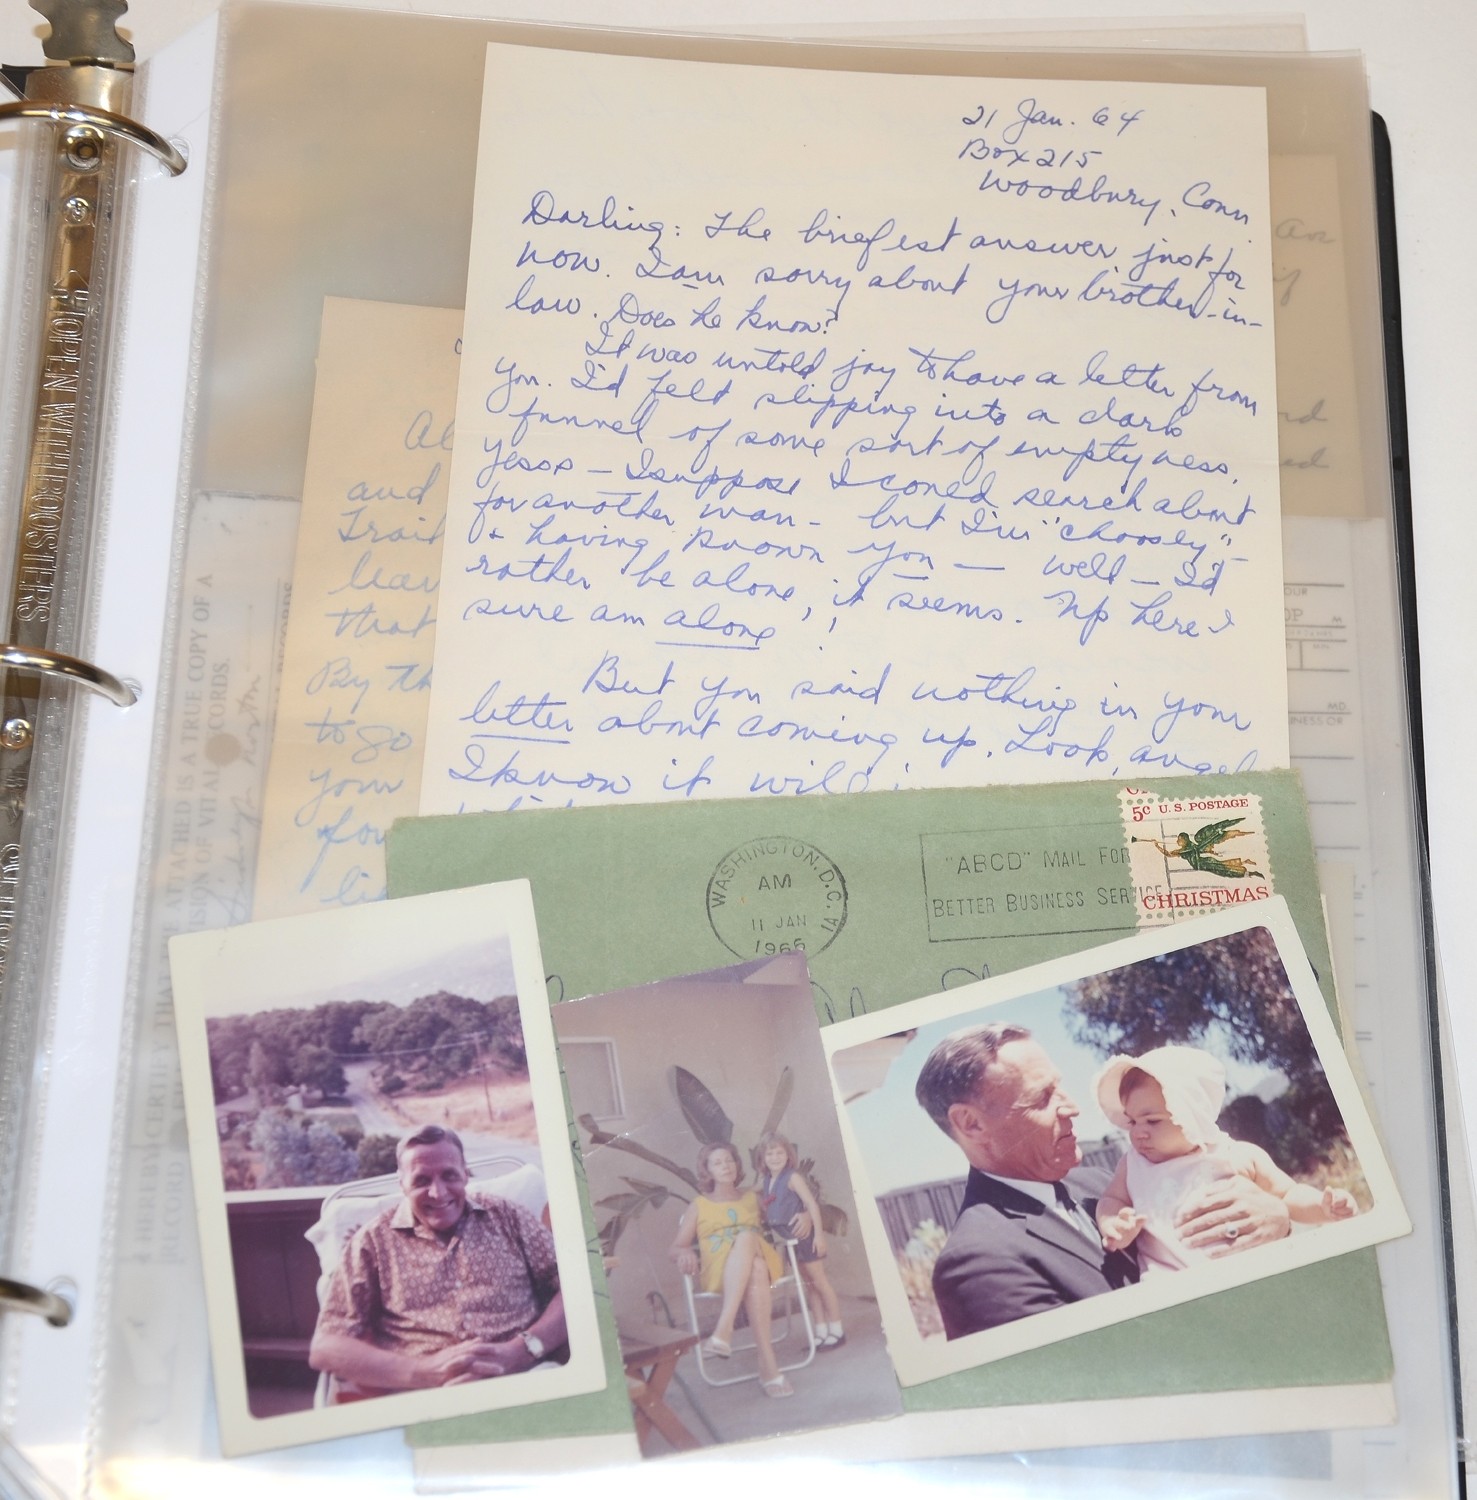 21 Jan. 64
Box 215
Woodbury, Conn.
Darling: The briefest answer just for
now. I am sorry about your brother-in-
law. Does he know?
It was untold joy to have a letter from
you. I'd felt slipping into a dark
funnel of some sort of emptyness.
Yesss – I suppose I coned search about
for another man – but I'm "choosey" –
+ having known you — well – I'd
rather be alone, it seems. Up here I
sure am alone!
But you said nothing in your
letter about coming up. Look, angel
I know it will
Al
and
Trail
leav
that
By th
to go
your
for
lik
WASHINGTON, D.C.
AM
11 JAN
1966
"ABCD" MAIL FOR
BETTER BUSINESS SERVICE
5c U.S. POSTAGE
CHRISTMAS
TO OPEN WITH BOOSTERS
I HEREBY CERTIFY THAT THE ATTACHED IS A TRUE COPY OF A
RECORD
DIVISION OF VITAL RECORDS.
RECORDS
MD.